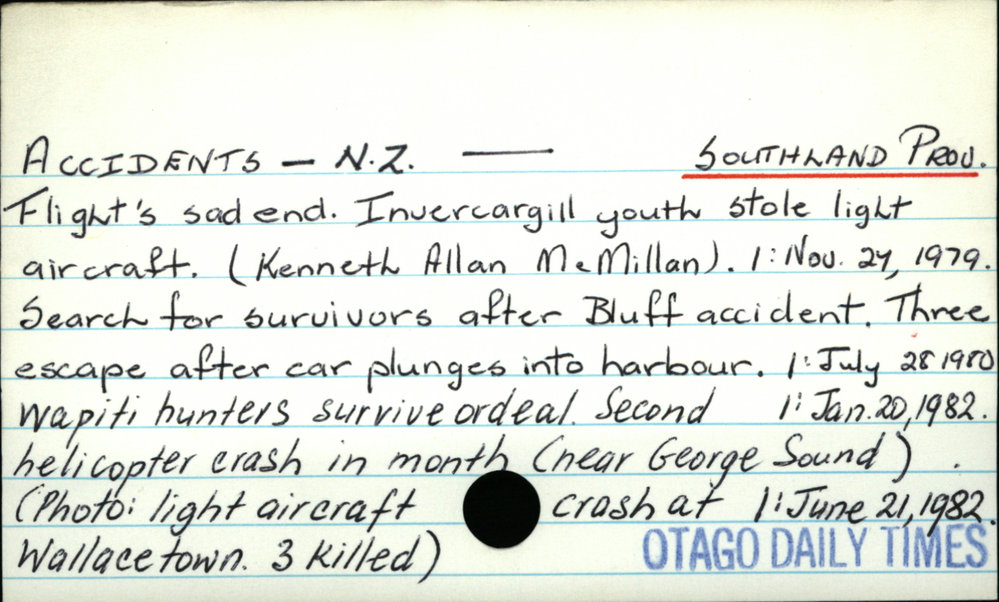 ACCIDENTS — N.Z. — SOUTHLAND PROV.
Flight's sad end. Invercargill youth stole light
aircraft. (Kenneth Allan McMillan). 1: Nov. 27, 1979.
Search for survivors after Bluff accident. Three
escape after car plunges into harbour. 1: July 28 1980
Wapiti hunters survive ordeal. Second 1: Jan. 20, 1982.
helicopter crash in month (near George Sound) .
(Photo: light aircraft crash at 1: June 21, 1982.
Wallacetown. 3 killed) OTAGO DAILY TIMES